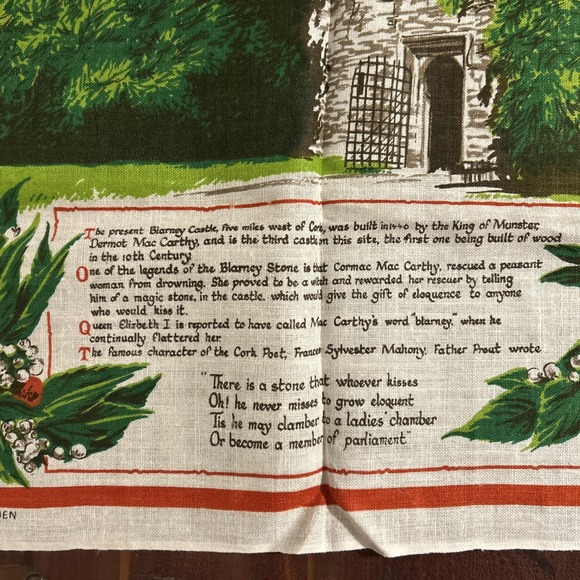 The present Blarney Castle, five miles west of Cork, was built in 1440 by the King of Munster,
Dermot Mac Carthy, and is the third castle on this site, the first one being built of wood
in the 10th Century
One of the legends of the Blarney Stone is that Cormac Mac Carthy, rescued a peasant
woman from drowning. She proved to be a witch and rewarded her rescuer by telling
him of a magic stone, in the castle, which would give the gift of eloquence to anyone
who would kiss it.
Queen Elizbeth I is reported to have called Mac Carthy's word "blarney," when he
continually flattered her.
The famous character of the Cork Poet, Frances Sylvester Mahony. Father Prout wrote
"There is a stone that whoever kisses
Oh! he never misses to grow eloquent
Tis he may clamber to a ladies' chamber
Or become a member of parliament"